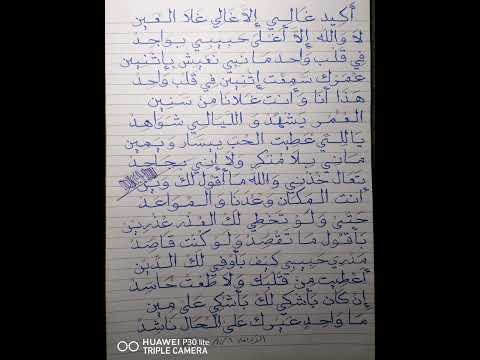 أكيد غالي إلا غالي علا العين
لا والله إلا أغلى حبيبي بواحد
في قلب واحد مانبي نعيش بإثنين
عمرك سمعت إثنين في قلب واحد
هذا أنا وأنت علانا من سنين
العمر يشهد و الليالي شواهد
ياللي عطيت الحب يسار ويمين
ماني بلا منكر ولا إني بجاحد
تعال خذني والله ما أقول لك وين
أنت المكان وعدنا والمواعد
حتى ولو تخطي لك العذر عذرين
بأقول ما تقصد ولو كنت قاصد
مدري حبيبي كيف بأوفي لك الدين
أعطيت من قلبك ولا طعت حاسد
إن كان بأشكي لك بأشكي على مين
ما واحد غيرك على الحال ناشد
HUAWEI P30 lite
TRIPLE CAMERA